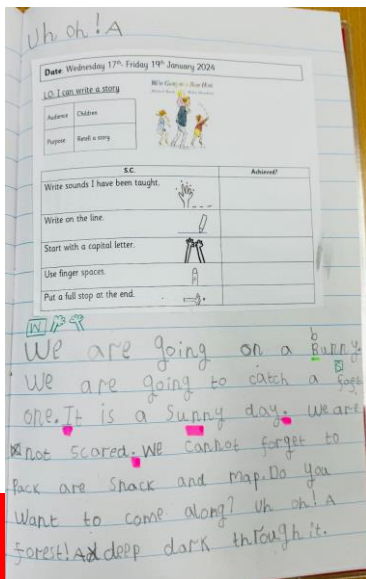 Uh oh! A
Date: Wednesday 17th- Friday 19th January 2024
LO. I can write a story
We're Going on a Bear Hunt
Audience Children
Purpose Retell a story
S.C. Achieved?
Write sounds I have been taught.
Write on the line.
Start with a capital letter.
Use finger spaces.
Put a full stop at the end.
W
b
We are going on a Bunny.
We are going to catch a
one. It is a sunny day. We are
not scared. We cannot forget to
Pack are snack and map. Do you
Want to come along? Uh oh! A
forest! A deep dark through it.